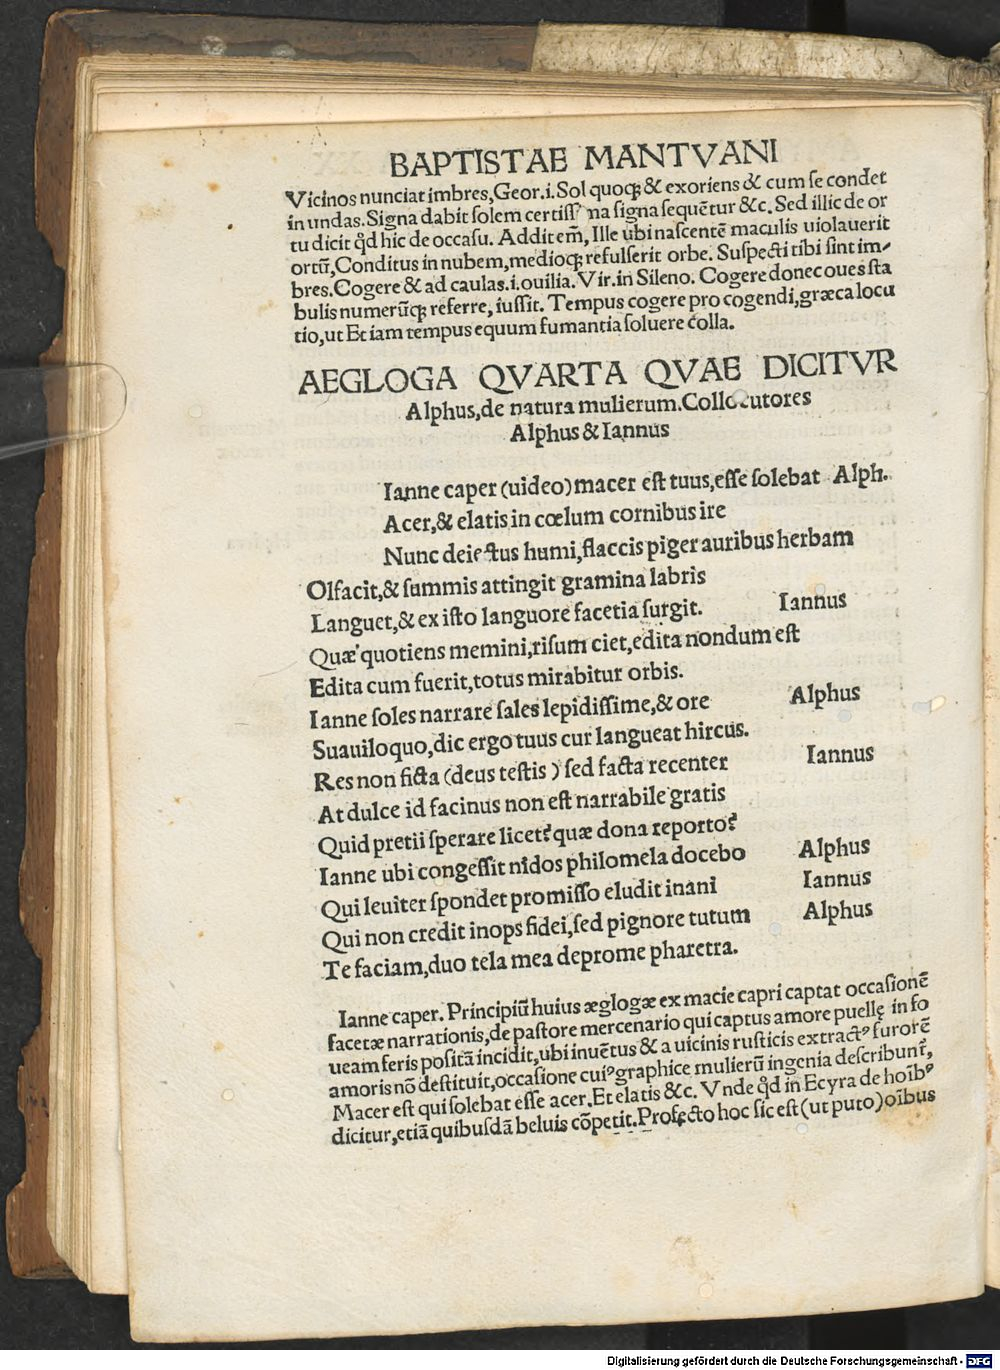 BAPTISTAE MANTVANI
Vicinos nunciat imbres, Geor.i. Sol quoqꝫ & exoriens & cum se condet
in undas. Signa dabit solem certiss na signa sequẽtur &c. Sed illic de or
tu dicit qđ hic de occasu. Addit em̃, Ille ubi nascentẽ maculis uiolauerit
ortũ, Conditus in nubem, medioqꝫ refulserit orbe. Suspecti tibi sint im-
bres. Cogere & ad caulas.i.ouilia. Vir.in Sileno. Cogere donec oues sta
bulis numerũqꝫ referre, iussit. Tempus cogere pro cogendi, græca locu
tio, ut Et iam tempus equum fumantia soluere colla.
AEGLOGA QVARTA QVAE DICITVR
Alphus, de natura mulierum. Collocutores
Alphus & Iannus
Ianne caper (uideo) macer est tuus, esse solebat Alph.
Acer, & elatis in cœlum cornibus ire
Nunc deiectus humi, flaccis piger auribus herbam
Olfacit, & summis attingit gramina labris
Languet, & ex isto languore facetia surgit. Iannus
Quæ quotiens memini, risum ciet, edita nondum est
Edita cum fuerit, totus mirabitur orbis.
Ianne soles narrare sales lepidissime, & ore Alphus
Suauiloquo, dic ergo tuus cur langueat hircus.
Res non ficta (deus testis) sed facta recenter Iannus
At dulce id facinus non est narrabile gratis
Quid pretii sperare licet? quæ dona reporto?
Ianne ubi congessit nidos philomela docebo Alphus
Qui leuiter spondet promisso eludit inani Iannus
Qui non credit inops fidei, sed pignore tutum Alphus
Te faciam, duo tela mea deprome pharetra.
Ianne caper. Principiũ huius æglogæ ex macie capri captat occasionẽ
facetæ narrationis, de pastore mercenario qui captus amore puellę in fo
ueam feris positã incidit, ubi inuẽtus & a uicinis rusticis extractꝰ furorẽ
amoris nõ destituit, occasione cuiꝰ graphice mulierũ ingenia describunt̃,
Macer est qui solebat esse acer. Et elatis &c. Vnde qđ in Ecyra de hoĩbꝰ
dicitur, etiã quibusdã beluis cõpetit. Profecto hoc sic est (ut puto) oĩbus
Digitalisierung gefördert durch die Deutsche Forschungsgemeinschaft - DFG